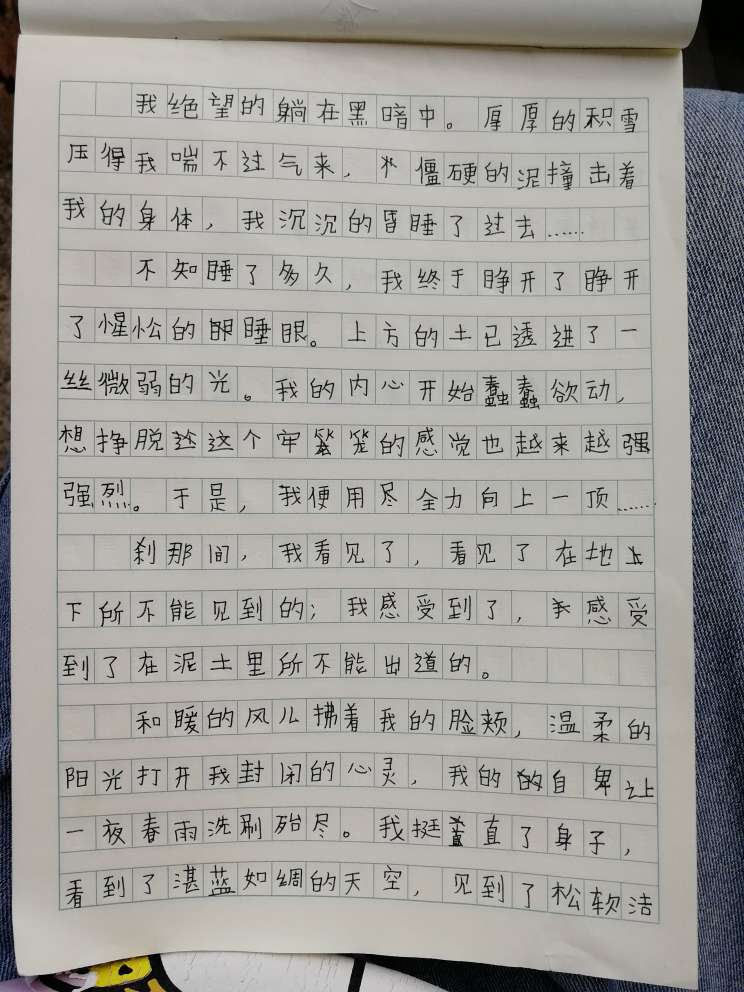 我绝望的躺在黑暗中。厚厚的积雪
压得我喘不过气来，僵硬的泥撞击着
我的身体，我沉沉的昏睡了过去……
不知睡了多久，我终于睁开了睁开
了惺松的眼睡眼。上方的土已透进了一
丝微弱的光。我的内心开始蠢蠢欲动，
想挣脱这个牢笼的感觉也越来越强
强烈。于是，我便用尽全力向上一顶……
刹那间，我看见了，看见了在地上
下所不能见到的；我感受到了，我感受
到了在泥土里所不能出道的。
和暖的风儿拂着我的脸颊，温柔的
阳光打开我封闭的心灵，我的的自卑让
一夜春雨洗刷殆尽。我挺直了身子，
看到了湛蓝如绸的天空，见到了松软洁